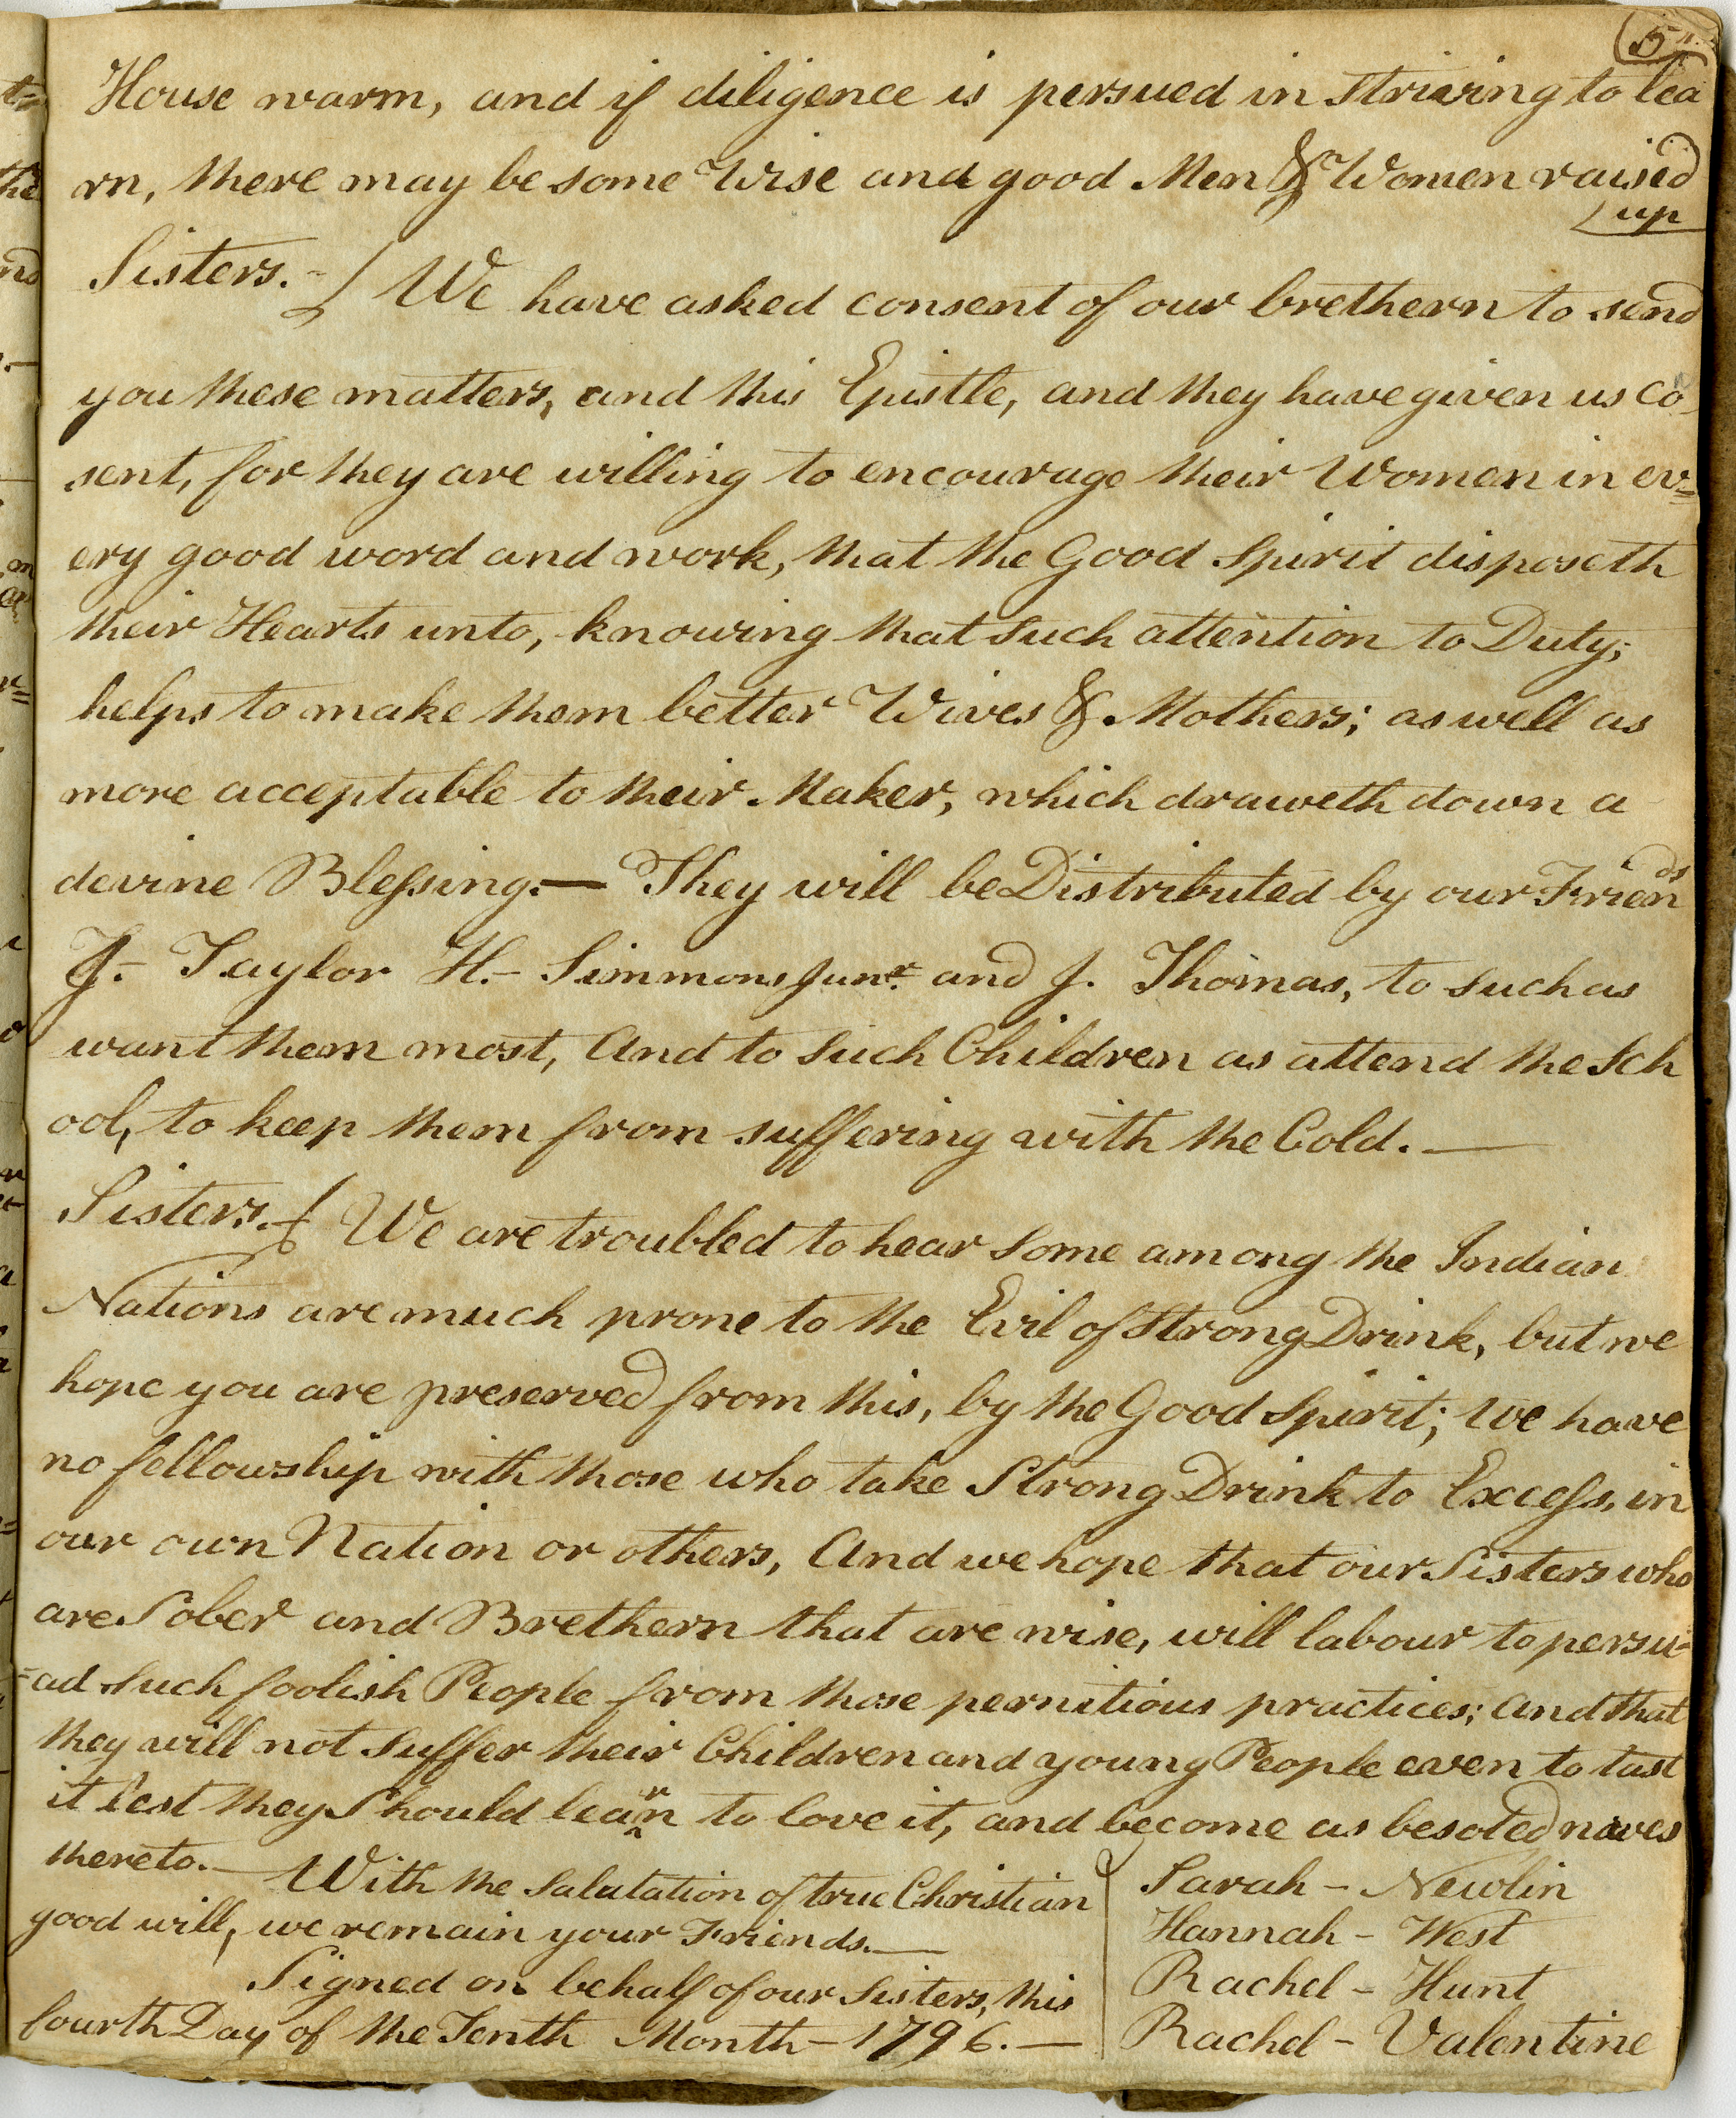 5
House warm, and if diligence is persued in Striving to lea
rn, there may be some Wise and good Men & Women raised
up
Sisters.- We have asked consent of our brethern to send
you these matters, and this Epistle, and they have given us co
sent, for they are willing to encourage their Women in ev=
ery good word and work, that the Good Spirit disposeth
their Hearts unto, knowing that such attention to Duty,
helps to make them better Wives & Mothers; as well as
more acceptable to their Maker, which draweth down a
devine Blessing.— They will be Distributed by our Friends
J.- Taylor H.- Simmons Junr. and J. Thomas, to such as
want them most, And to such Children as attend the Sch
ool, to keep them from suffering with the Cold.—
Sisters.- We are troubled to hear some among the Indian
Nations are much prone to the Evil of Strong Drink, but we
hope you are preserved from this, by the Good Spirit; We have
no fellowship with those who take Strong Drink to Excess, in
our own Nation or others, And we hope that our Sisters who
are Sober and Brethern that are wise, will labour to persu-
=ad such foolish People from those pernitious practices; and that
they will not suffer their Children and young People even to tast
it lest they Should learn to love it, and become as besoted
thereto.— With the Salutation of true Christian
good will, we remain your Friends.—
Signed on behalf of our Sisters, this
fourth Day of the Tenth Month - 1796.—
Sarah - Newlin
Hannah - West
Rachel - Hunt
Rachel - Valentine